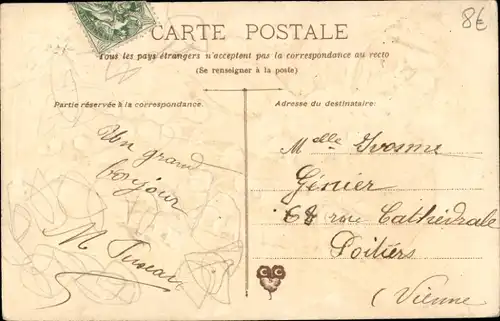 8€
CARTE POSTALE
Tous les pays étrangers n'acceptent pas la correspondance au recto
(Se renseigner à la poste)
Partie réservée à la correspondance.
Adresse du destinataire:
Un grand
bonjour
M
Melle Yvonne
Génier
68 rue Cathédrale
Poitiers
(Vienne
C C